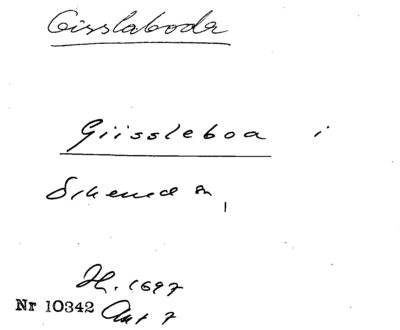 Gisslaboda
Giissleboa i
Skemd sn,
Hl. 1697
Nr 10342 Ant 7